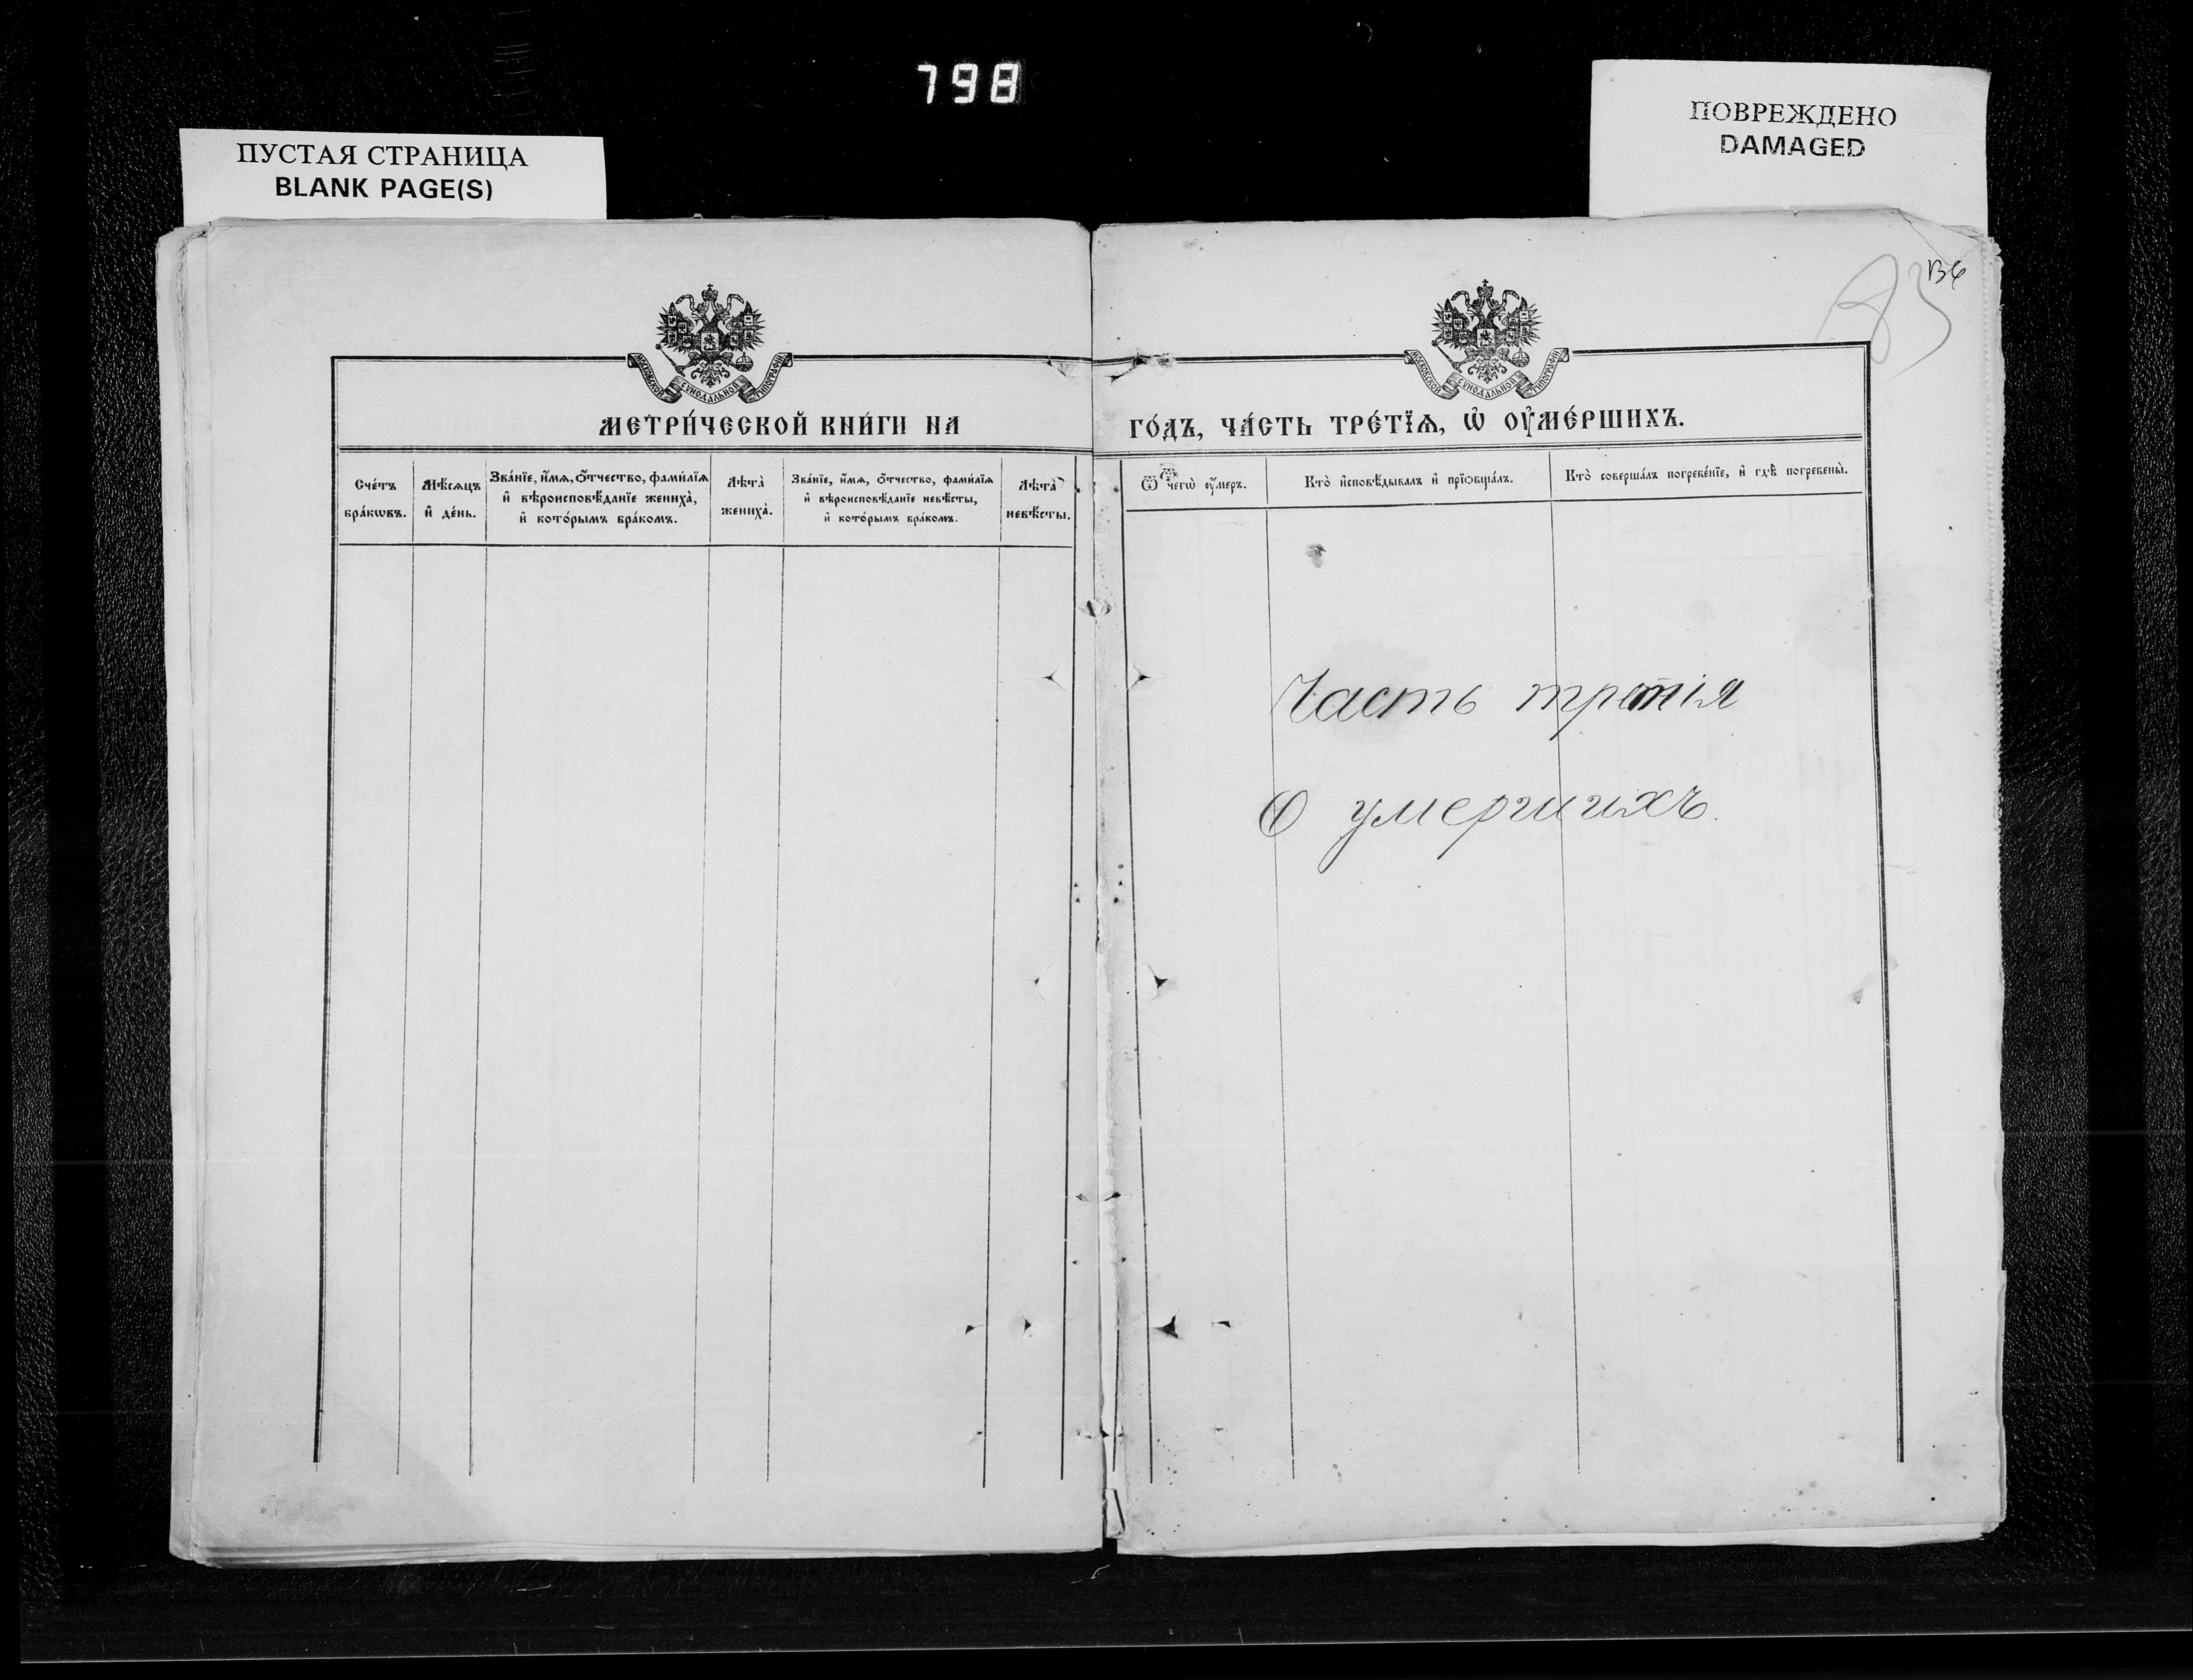 798
ПУСТАЯ СТРАНИЦА
BLANK PAGE(S)
ПОВРЕЖДЕНО
DAMAGED
МОСКОВСКОЙ СѴНОДАЛЬНОЙ ТИПОГРАФІИ
МЕТРИ́ЧЕСКОЙ КНИ́ГИ НА
Сче́тъ бра́кѡвъ.
Мѣ́сѧцъ и҆ де́нь.
Зва́нїе, и҆́мѧ, ѻ҆́тчество, фами́лїѧ
и҆ вѣроисповѣ́данїе жениха̀,
и҆ кото́рымъ бра́комъ.
Лѣта̀ жениха̀.
Зва́нїе, и҆́мѧ, ѻ҆́тчество, фами́лїѧ
и҆ вѣроисповѣ́данїе невѣ́сты,
и҆ кото́рымъ бра́комъ.
Лѣта̀ невѣ́сты.
83
МОСКОВСКОЙ СѴНОДАЛЬНОЙ ТИПОГРАФІИ
ГО́ДЪ, ЧА́СТЬ ТРЕ́ТЇѦ, Ѡ҆ ОУ҆МЕ́РШИХЪ.
Ѿ чегѡ̀ оу҆́меръ.
Кто̀ и҆сповѣ́дывалъ и҆ прїѻбща́лъ.
Кто̀ соверша́лъ погребе́нїе, и҆ гдѣ̀ погребены̀.
Часть третія
О умершихъ.